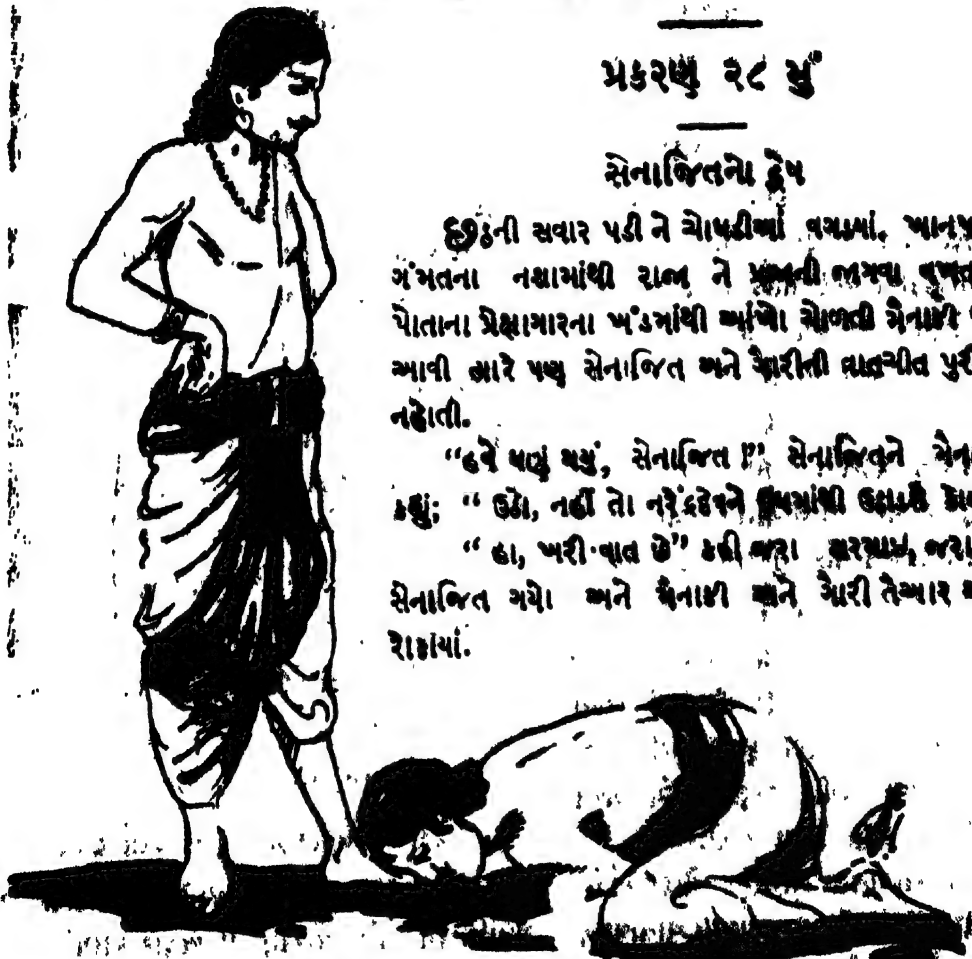 પ્રકરણ ૨૮ મું
સેનાજિતનો દ્વેષ
છઠ્ઠની સવાર પડી ને ચોઘડીઆં વગડ્યાં.
ગંમતના નશામાંથી રાજા ને જાગવા
પોતાના પ્રેક્ષાગારના ખંડમાંથી આંખો ચોળતી મૈનાકી
આવી ત્યારે પણ સેનાજિત અને ગૌરીની વાતચીત પુરી
નહોતી.
“હવે ઘણું થયું, સેનાજિત !” સેનાજિતને
કહ્યું; “ ઉઠો, નહીં તો નરેંદ્રદેવને ઉંઘમાંથી ઉઠાડશે
“ હા, ખરી વાત છે” કહી જરા શરમાઇ, જરા
સેનાજિત ગયો અને મૈનાકી અને ગૌરી તૈઆર
રોકાયાં.